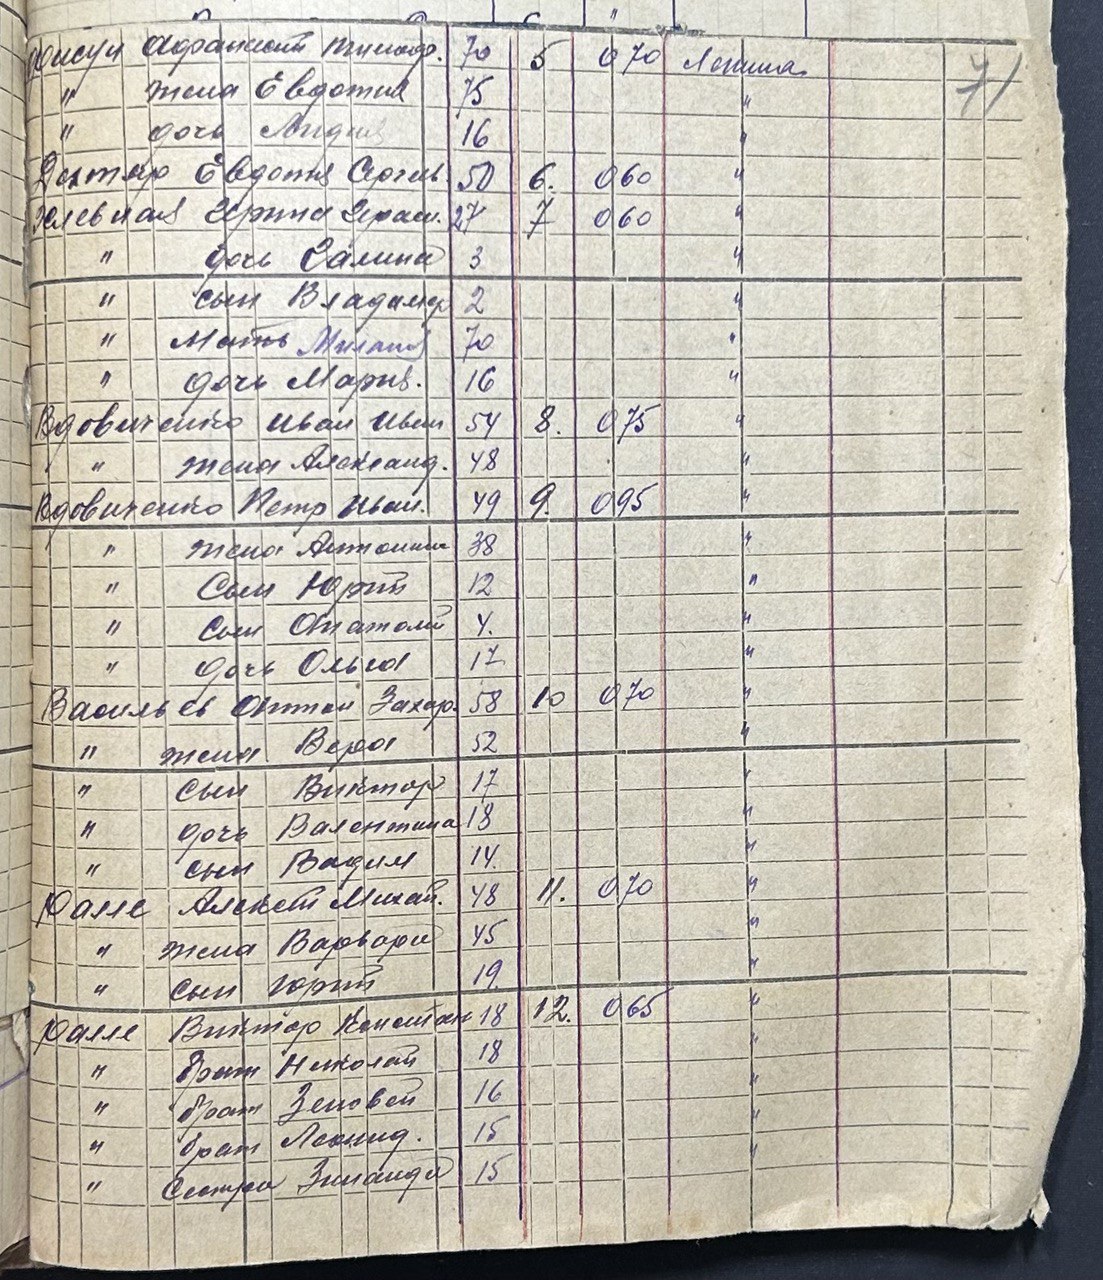 Фисун Афанасий Тимоф. 70 5 070 Ленина 71
" жена Евдокия 75 "
" дочь Лидия 16 "
Евдокия 50 6. 060 "
27 7 060 "
" дочь Галина 3 "
" сын Владимир 2 "
" Мать 70 "
" дочь Мария. 16 "
Вдовиченко Иван Иван 54 8. 075 "
" жена Александ. 48 "
Вдовиченко Петр Иван. 49 9. 095 "
" жена Антонина 38 "
" Сын Юрий 12 "
" Сын Анатолий 4. "
" дочь Ольга 17 "
Васильев Антон Захар. 58 10 070 "
" жена Вера 52 "
" сын Виктор 17 "
" дочь Валентина 18 "
" сын Вадим 14. "
Алексей Михай. 48 11. 070 "
" жена Варвара 45 "
" сын Юрий 19. "
Виктор Констан 18 12. 065 "
" брат Николай 18 "
" брат Зеновей 16 "
" брат Леонид. 15 "
" Сестра Зинаида 15 "